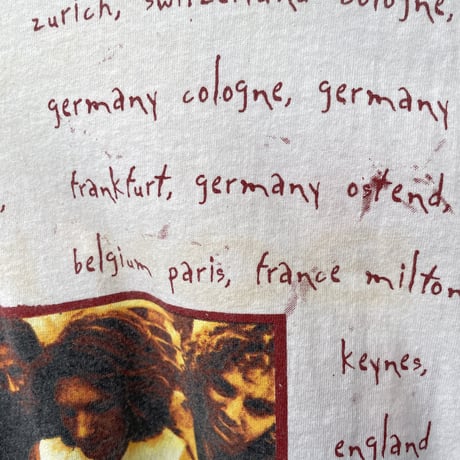 zurich, switzerland cologne,
germany cologne, germany
frankfurt, germany ostend,
belgium paris, france milton
keynes,
england